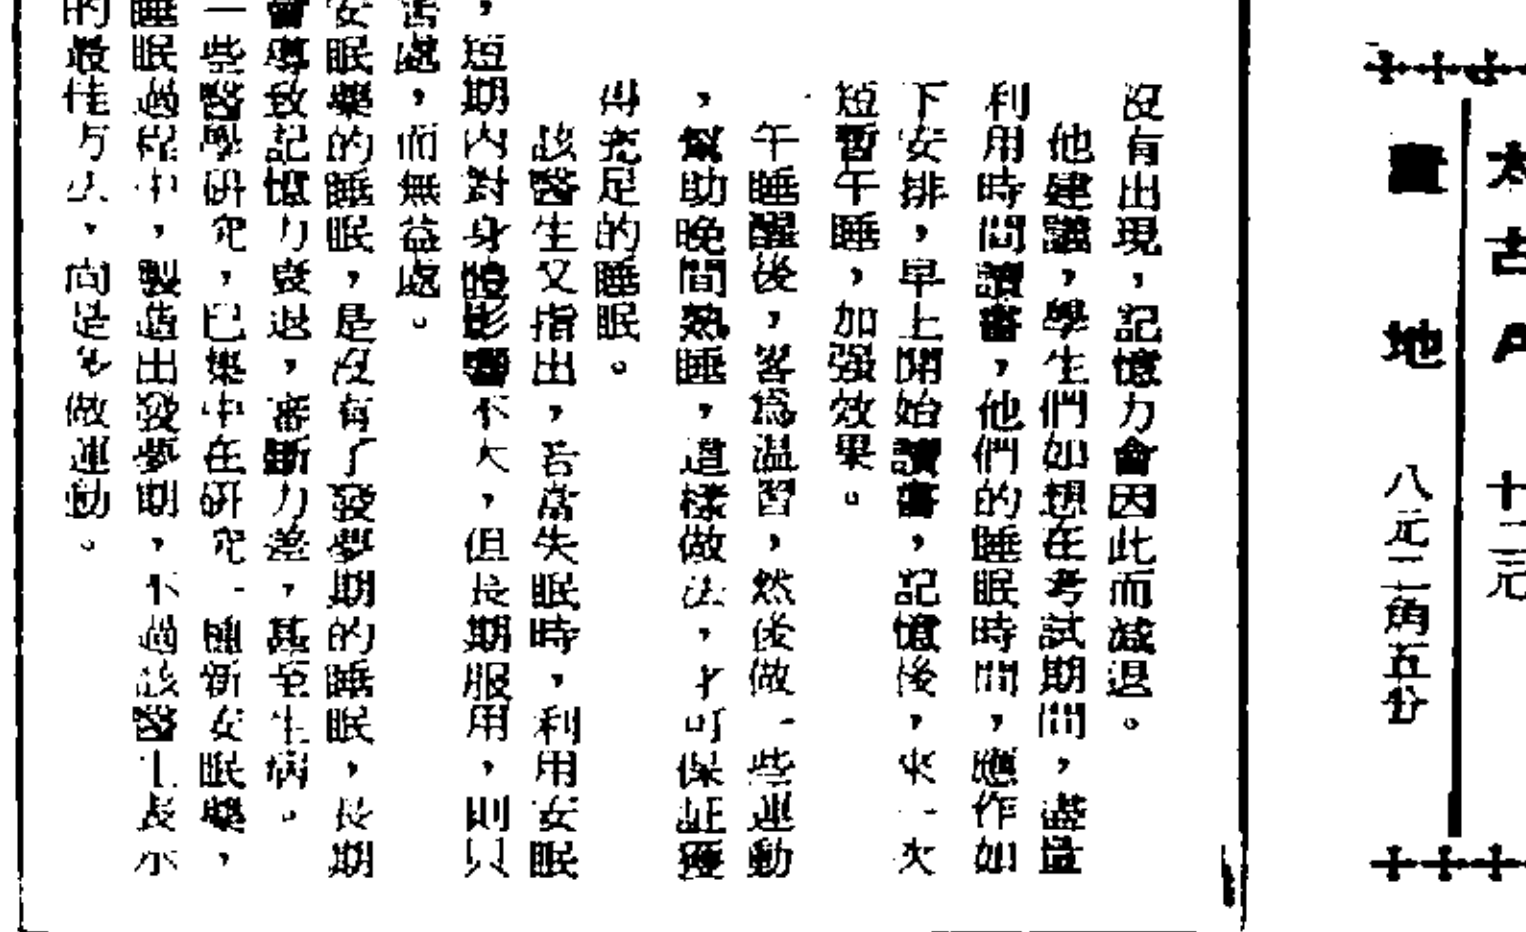 太古A 十二元
置地 八元二角五分
沒有出現，記憶力會因此而減退。
他建議，學生們如想在考試期間，盡量
利用時間讀書，他們的睡眠時間，應作如
下安排，早上開始讀書，記憶後，來一次
短暫午睡，加强效果。
午睡醒後，畧為温習，然後做一些運動
，幫助晚間熟睡，這樣做法，才可保証獲
得充足的睡眠。
該醫生又指出，若常失眠時，利用安眠
，短期內對身體影響不大，但長期服用，則只
害處，而無益處。
安眠藥的睡眠，是沒有了發夢期的睡眠，長期
會導致記憶力衰退，審斷力差，甚至生病。
一些醫學研究，已集中在研究一種新安眠藥，
睡眠過程中，製造出發夢期，不過該醫生表示
的最佳方法，尚是多做運動。